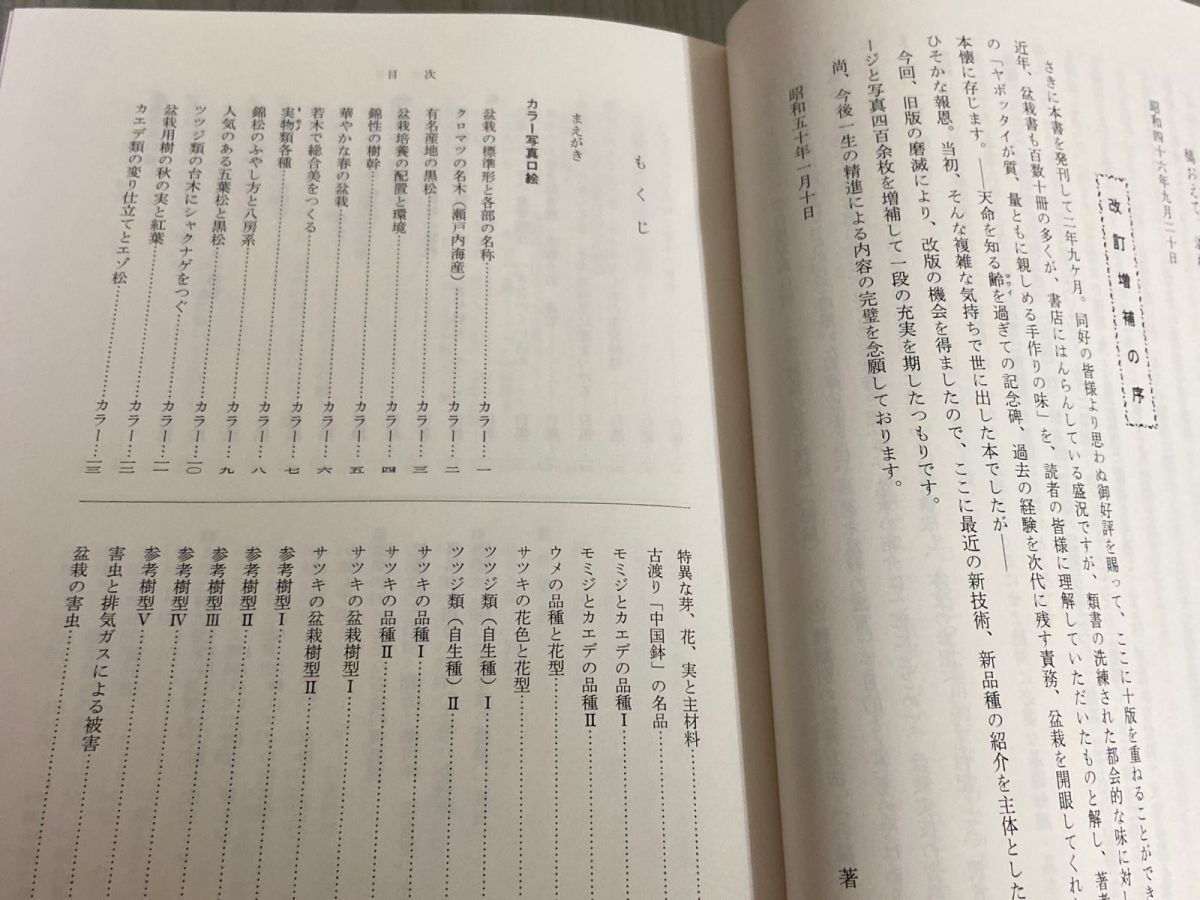 昭和四十六年九月二十日
改訂増補の序
さきに本書を発刊して二年九ケ月。同好の皆様より思わぬ御好評を賜って、ここに十版を重ねることができ
近年、盆栽書も百数十冊の多くが、書店にはんらんしている盛況ですが、類書の洗練された都会的な味に対し
の「ヤボッタイが質、量ともに親しめる手作りの味」を、読者の皆様に理解していただいたものと解し、著者
本懐に存じます。――天命を知る齢を過ぎての記念碑、過去の経験を次代に残す責務、盆栽を開眼してくれ
ヨワイ
ひそかな報恩。当初、そんな複雑な気持ちで世に出した本でしたが――
今回、旧版の磨滅により、改版の機会を得ましたので、ここに最近の新技術、新品種の紹介を主体とした
ージと写真四百余枚を増補して一段の充実を期したつもりです。
尚、今後一生の精進による内容の完璧を念願しております。
昭和五十年一月十日
著
もくじ
まえがき
カラー写真口絵
盆栽の標準形と各部の名称……カラー…一
クロマツの名木（瀬戸内海産）……カラー…二
有名産地の黒松……カラー…三
盆栽培養の配置と環境……カラー…四
錦性の樹幹……カラー…五
華やかな春の盆栽……カラー…六
若木で総合美をつくる……カラー…七
実物類各種……カラー…八
ミモノ
錦松のふやし方と八房系……カラー…九
人気のある五葉松と黒松……カラー…一〇
ツツジ類の台木にシャクナゲをつぐ……カラー…一一
盆栽用樹の秋の実と紅葉……カラー…一二
カエデ類の変り仕立てとエゾ松……カラー…一三
目次
特異な芽、花、実と主材料……
古渡り「中国鉢」の名品……
モミジとカエデの品種Ⅰ……
モミジとカエデの品種Ⅱ……
ウメの品種と花型……
サツキの花色と花型……
ツツジ類（自生種）Ⅰ……
ツツジ類（自生種）Ⅱ……
サツキの品種Ⅰ……
サツキの品種Ⅱ……
サツキの盆栽樹型Ⅰ……
サツキの盆栽樹型Ⅱ……
参考樹型Ⅰ……
参考樹型Ⅱ……
参考樹型Ⅲ……
参考樹型Ⅳ……
参考樹型Ⅴ……
害虫と排気ガスによる被害……
盆栽の害虫……